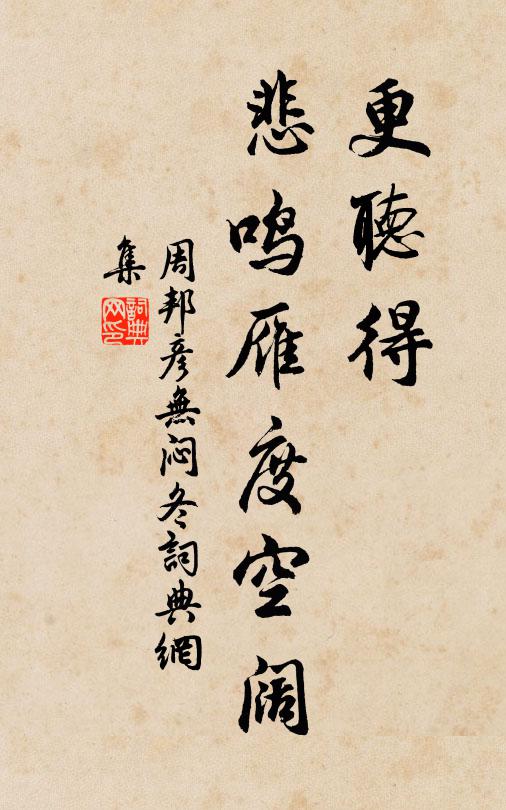 更聽得
悲鳴雁度空阔
周邦彦無闷冬詞典網
集
詞典网印